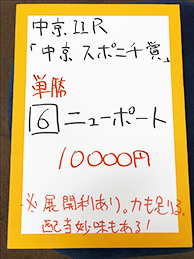 中京11R
「中京スポニチ賞」
単勝
6 ニューポート
10000円
※展開利あり。力も足りる。
配当妙味もある!